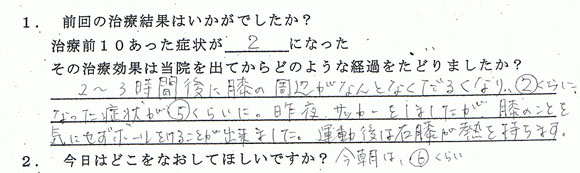 1. 前回の治療結果はいかがでしたか?
治療前10あった症状が 2 になった
その治療効果は当院を出てからどのような経過をたどりましたか?
2~3時間後に膝の周辺がなんとなくだるくなり、②くらいに
なった症状が⑤くらいに。昨夜サッカーをしましたが膝のことを
気にせずボールをけることが出来ました。運動後は右膝が熱を持ちます。
2. 今日はどこをなおしてほしいですか? 今朝は、⑥くらい